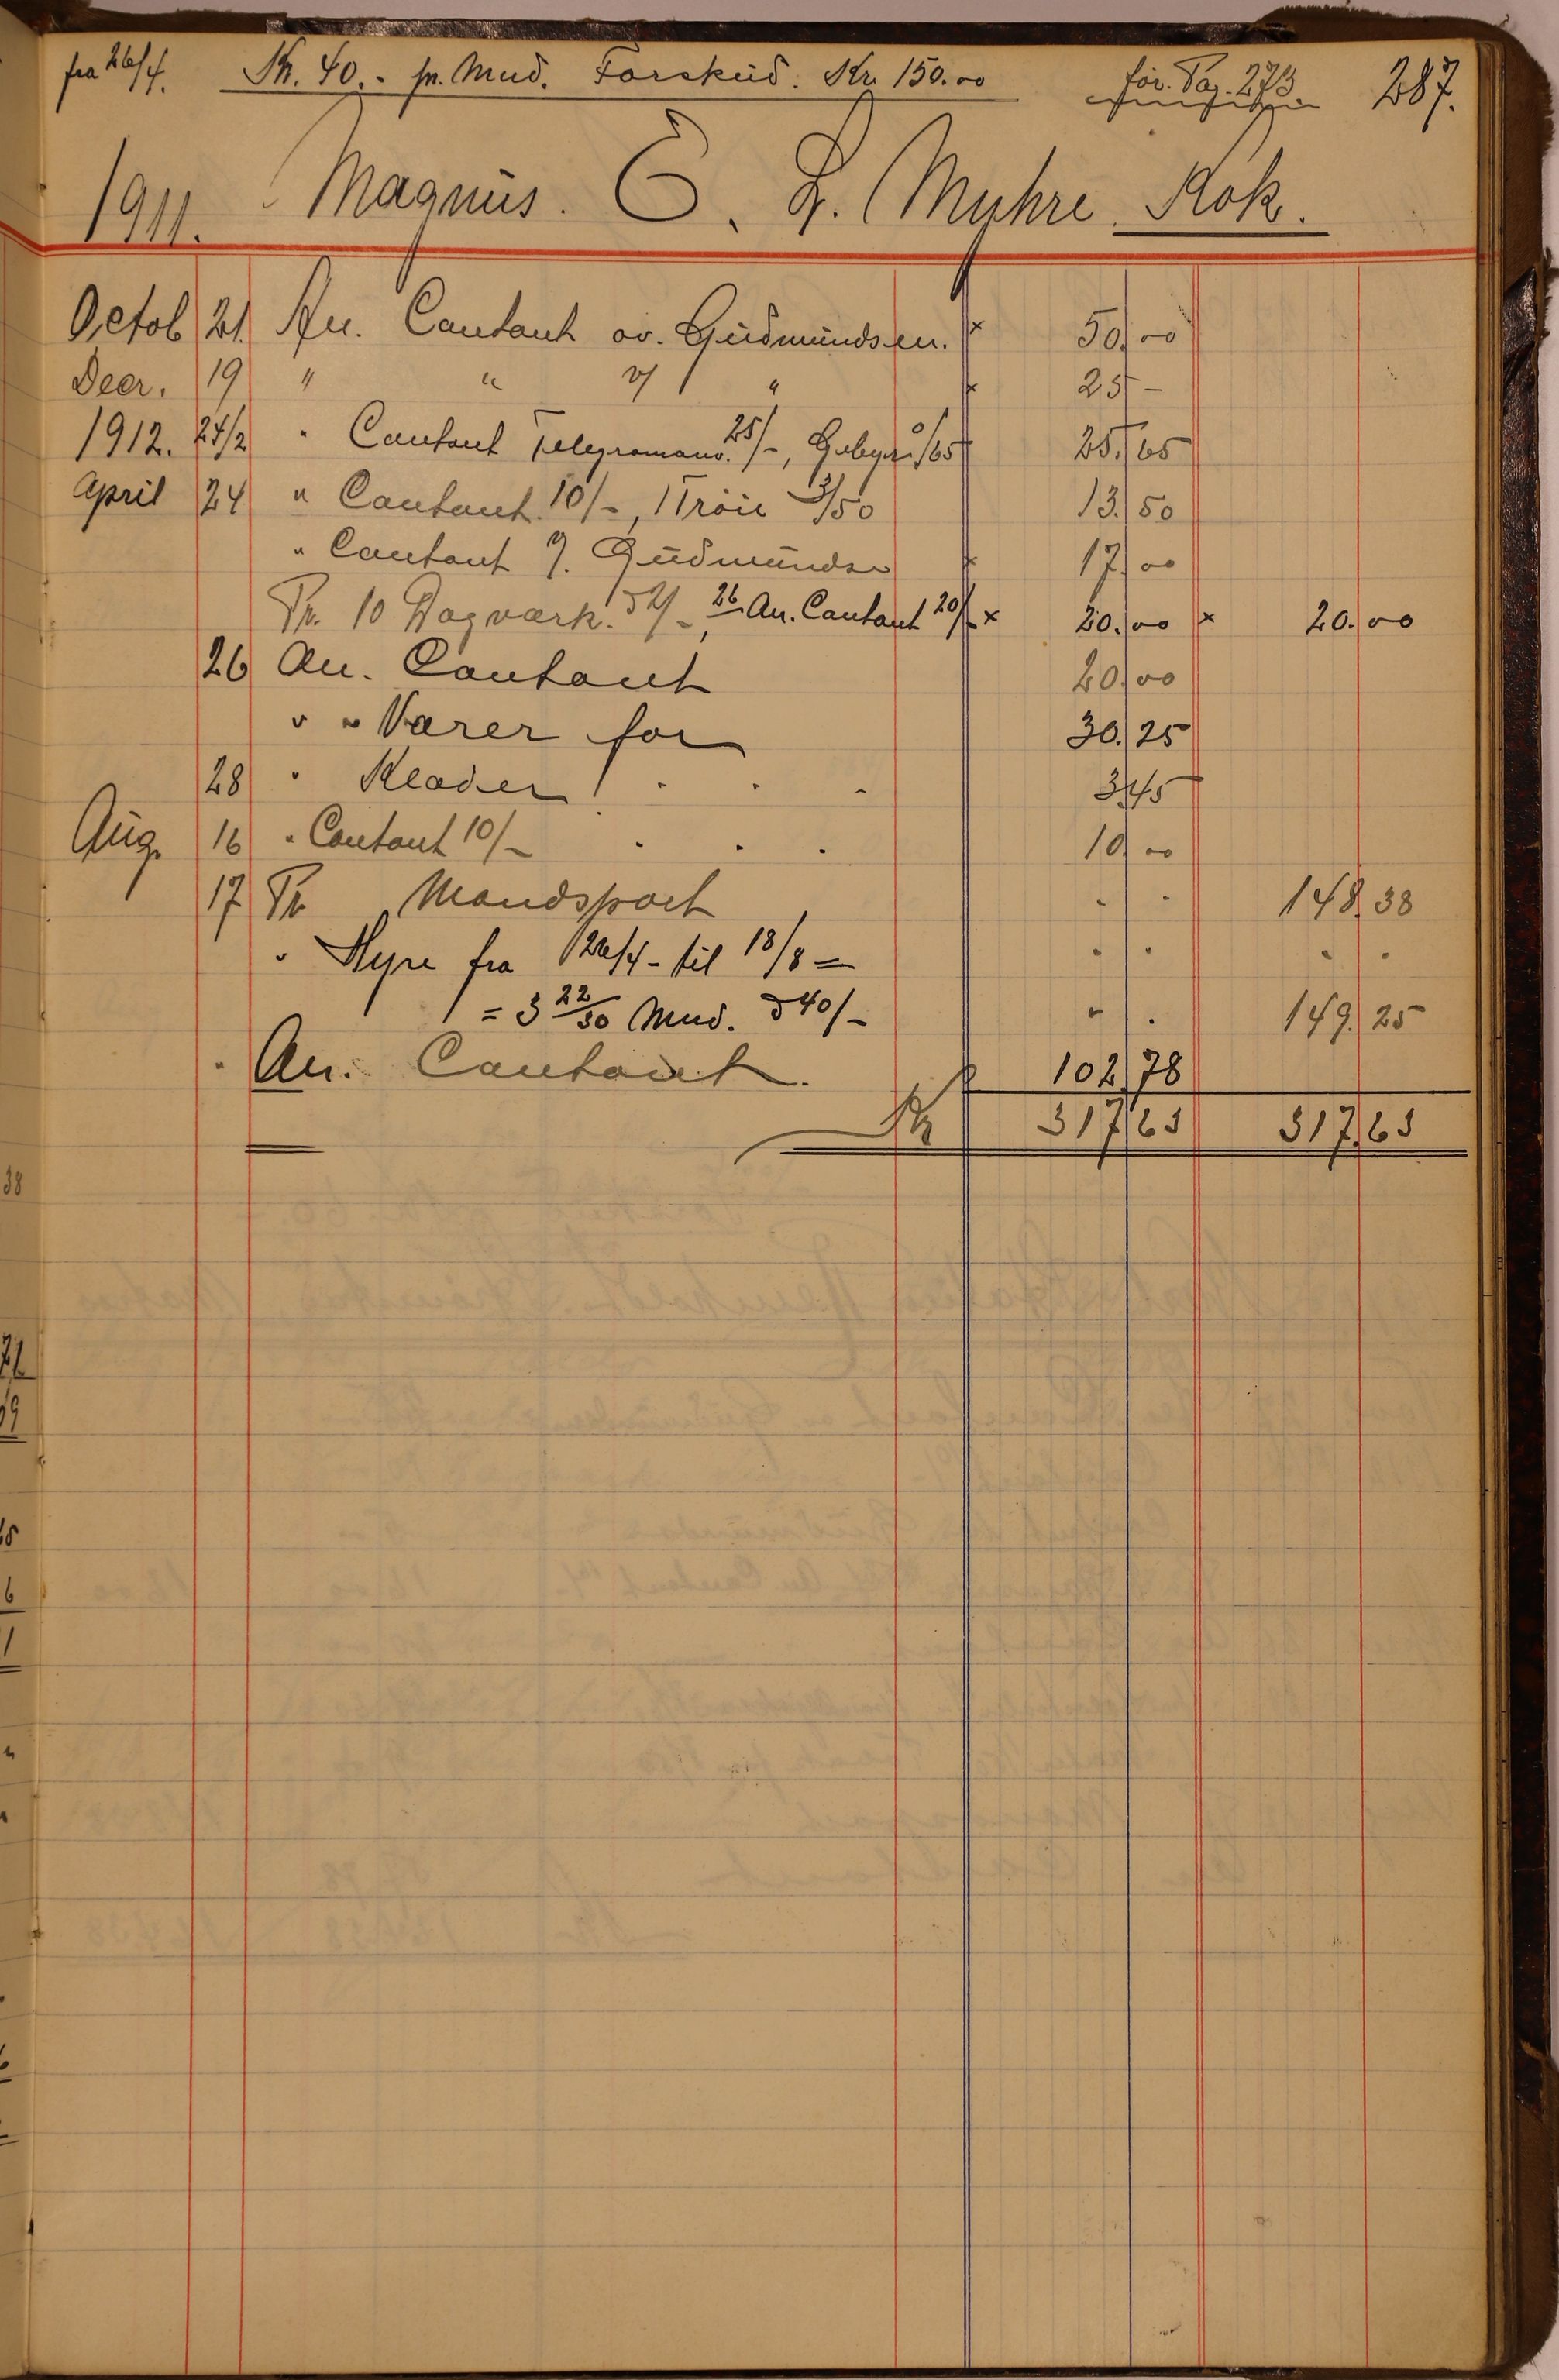 fra 26/4. Kr. 40.- pr. Mnd. Forskud. Kr. 150.00 for. Pag. 273 287.
1911. Magnus. E. L. Myhre. Kok.
Octob 21. An. Contant av. Gudmundsen. × 50.00
Decr. 19 " " v/ " × 25 -
1912. 24/2 " Contant Telegramanv. 25/-, Gebyr 0/65 25.65
April 24 " Contant. 10/-, 1 Tröie 3/50 13.50
" Contant J. Gudmundsen × 17.00
Pr. 10 Dagværk. à 2/-, 26 An. Contant 20/- × 20.00 × 20.00
26 An. Contant 20.00
" " Varer for 30.25
28 " Klæder . . . 3.45
Aug. 16 " Contant 10/- . . . 10.00
17 Pr Mandspart . . 148.38
" Hyre fra 26/4 - til 18/8 = . . . .
= 3 22/30 Mnd. à 40/- " . 149.25
" An. Contant. 102.78
Kr 317.63 317.63
38